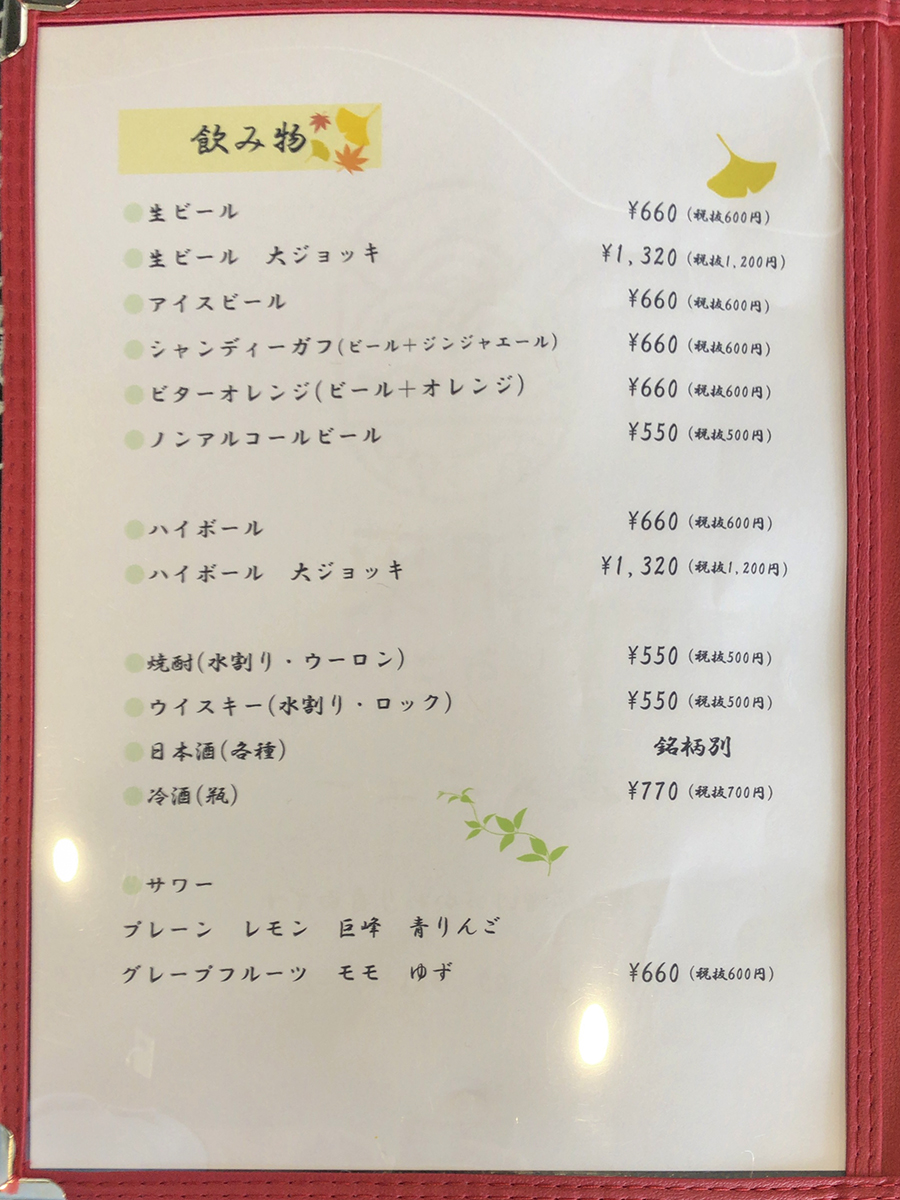 飲み物
生ビール ¥660(税抜600円)
生ビール 大ジョッキ ¥1,320(税抜1,200円)
アイスビール ¥660(税抜600円)
シャンディーガフ(ビール+ジンジャエール) ¥660(税抜600円)
ビターオレンジ(ビール+オレンジ) ¥660(税抜600円)
ノンアルコールビール ¥550(税抜500円)
ハイボール ¥660(税抜600円)
ハイボール 大ジョッキ ¥1,320(税抜1,200円)
焼酎(水割り・ウーロン) ¥550(税抜500円)
ウイスキー(水割り・ロック) ¥550(税抜500円)
日本酒(各種) 銘柄別
冷酒(瓶) ¥770(税抜700円)
サワー
プレーン レモン 巨峰 青りんご
グレープフルーツ モモ ゆず ¥660(税抜600円)